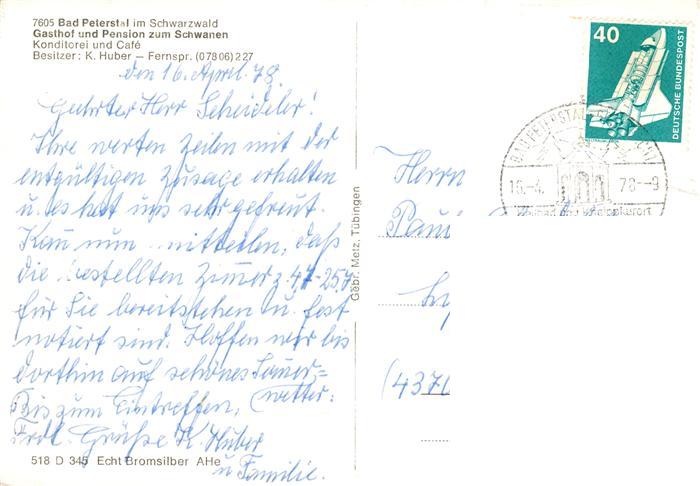 7605 Bad Peterstal im Schwarzwald
Gasthof und Pension zum Schwanen
Konditorei und Café
Besitzer: K. Huber – Fernspr. (07806) 227
den 16. April. 78.
Geehrter Herr Scheideler!
Ihre werten Zeilen mit der
entgültigen Zusage erhalten
u. es hat uns sehr gefreut.
Kann nun mitteilen, daß
die bestellten Zimmer z. 4.7-25.7
für Sie bereitstehen u. fest
notiert sind. Hoffen wir bis
dorthin auf schönes
wetter.
Bis zum Eintreffen,
Frdl. Grüße K. Huber
u Familie.
518 D 345 Echt Bromsilber AHe
Gebr. Metz, Tübingen
40
DEUTSCHE BUNDESPOST
BAD PETERSTAL-
16.-4. 78-9
Herrn
(437